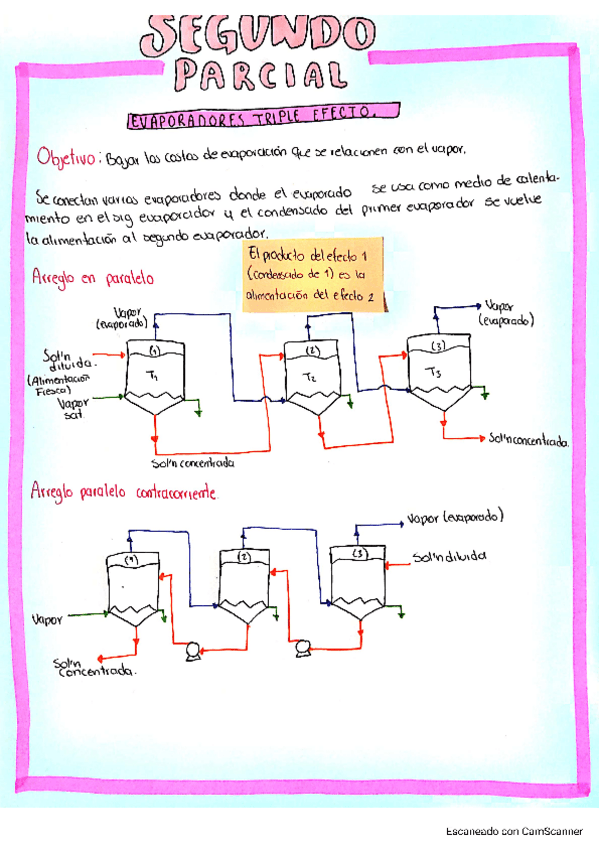 SEGUNDO
PARCIAL
EVAPORADORES TRIPLE EFECTO.
Objetivo: Bajar los costos de evaporación que se relacionen con el vapor.
Se conectan varios evaporadores donde el evaporado se usa como medio de calenta-
miento en el sig evaporador y el condensado del primer evaporador se vuelve
la alimentación al segundo evaporador.
El producto del efecto 1
(condensado de 1) es la
alimentación del efecto 2
Arreglo en paralelo
Vapor
(evaporado)
Vapor
(evaporado)
(1)
(2)
(3)
Sol'n
diluida.
(Alimentación
Fresca)
T1
T2
T3
Vapor
sat.
Sol'n concentrada
Sol'n concentrada.
Arreglo paralelo contracorriente
Vapor (evaporado)
(1)
(2)
(3)
Sol'n diluida
Vapor
Sol'n
concentrada.
Escaneado con CamScanner